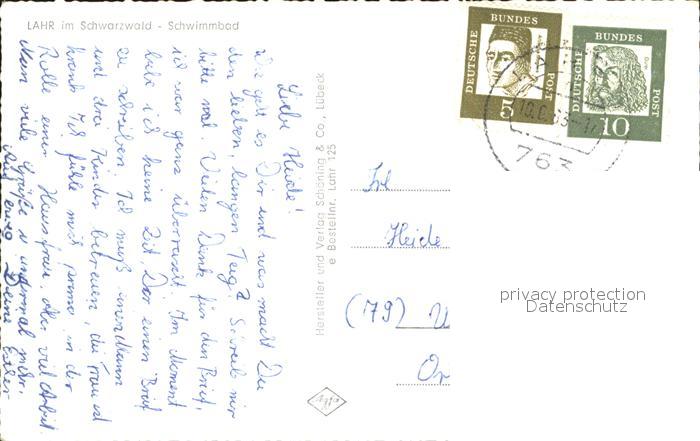 LAHR im Schwarzwald - Schwimmbad
Liebe Heide!
Wie geht es Dir und was machst Du
den lieben, langen Tag? Schreib mir
bitte mal. Vielen Dank für den Brief,
ich war ganz überrascht. Im Moment
habe ich keine Zeit, Dir einen Brief
zu schreiben. Ich muß
und drei Kinder betreuen, die Frau ist
krank. Ich fühle mich prima in der
Rolle einer Hausfrau, aber viel Arbeit.
Nun viele Grüße u.
Deine
Hersteller und Verlag Schöning & Co., Lübeck
e Bestellnr. Lahr 125
DEUTSCHE BUNDESPOST
5
DEUTSCHE BUNDESPOST
10
763
Frl
Heide
(79) U
privacy protection
Datenschutz